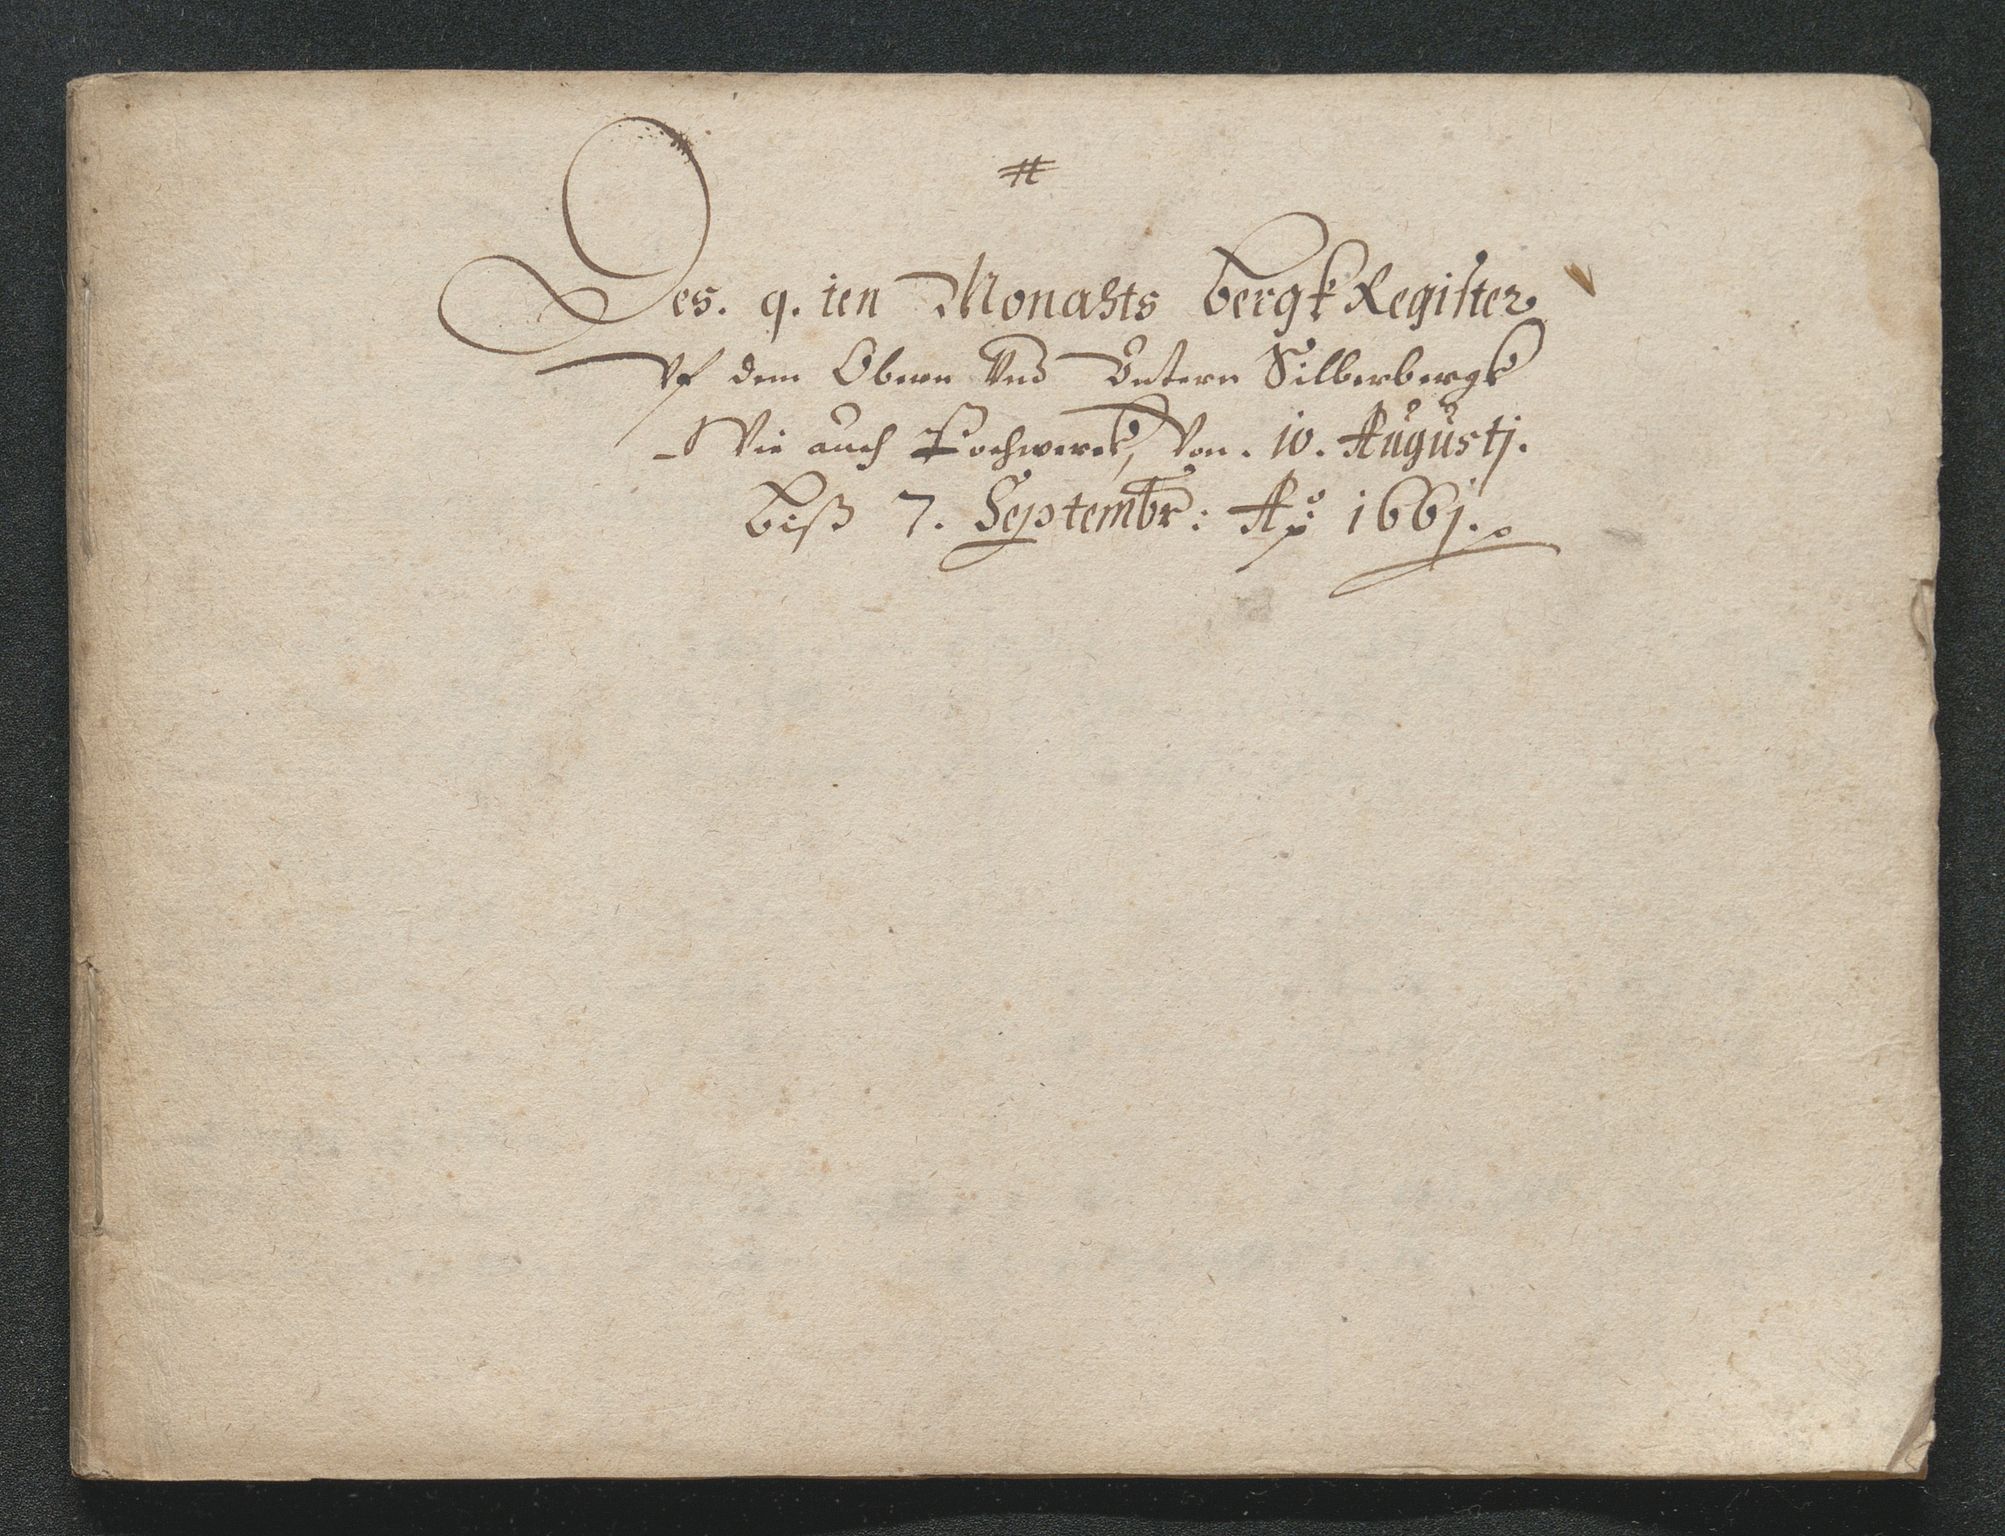 #
Des. 9. ten Monahts bergk Register
Vf dem Obern Vnd Vntern Silberbergk
Wie auch Pochwerck, Von. 10. Augustj.
biß 7. Septembr: Ao: 1661.